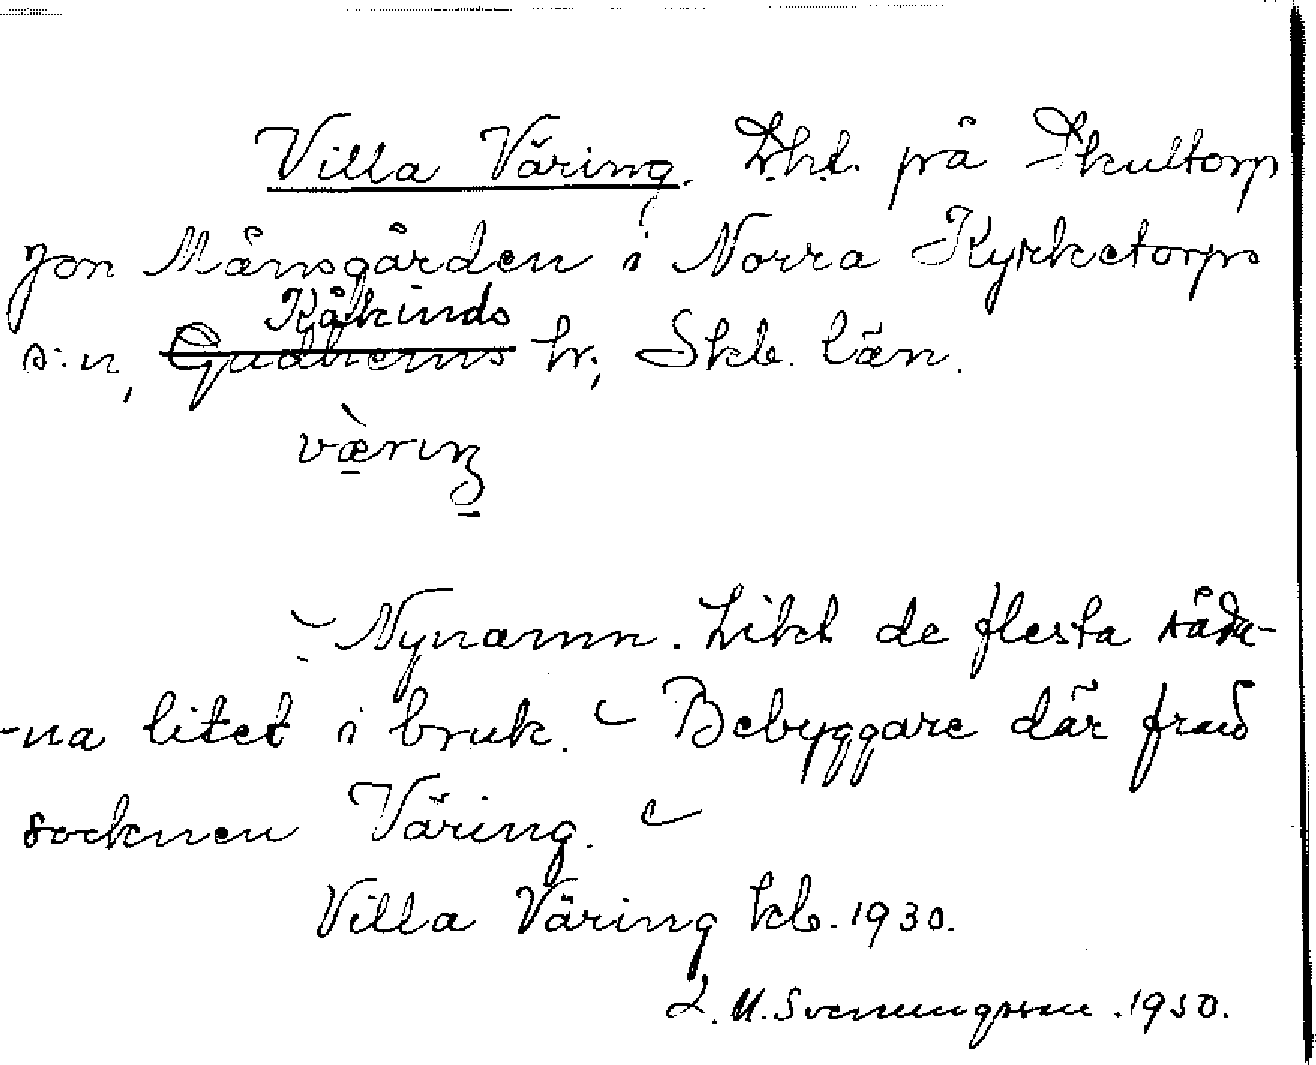 Villa Väring. Lht. på Skultorp
Jon Månsgården i Norra Kyrketorps
Kåkinds
s:n, Gudhems hr, Skb. län.
vὰ̠riŋ
Nynamn. Likt de flesta såda-
-na litet i bruk. Bebyggare där från
socknen Väring.
Villa Väring kb. 1930.
Svenungsson. 1950.